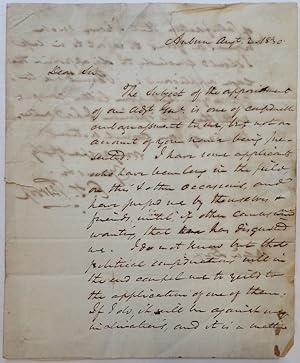 Auburn Augt. 2. 1830
Dear Sir
The subject of the appointment
of an Adjt Genl is one of
embarrassment to me, but not on
account of your name being pre-
sented. I have some applicants
who have been long in the field
on this & other occasions, and
have pressed me by themselves &
friends until if other
wanting that has disgusted
me. I do not know but that
political considerations will in
the end compel me to yield to
the application of one of them.
If I do, it will be against my
inclinations, and it is a matter